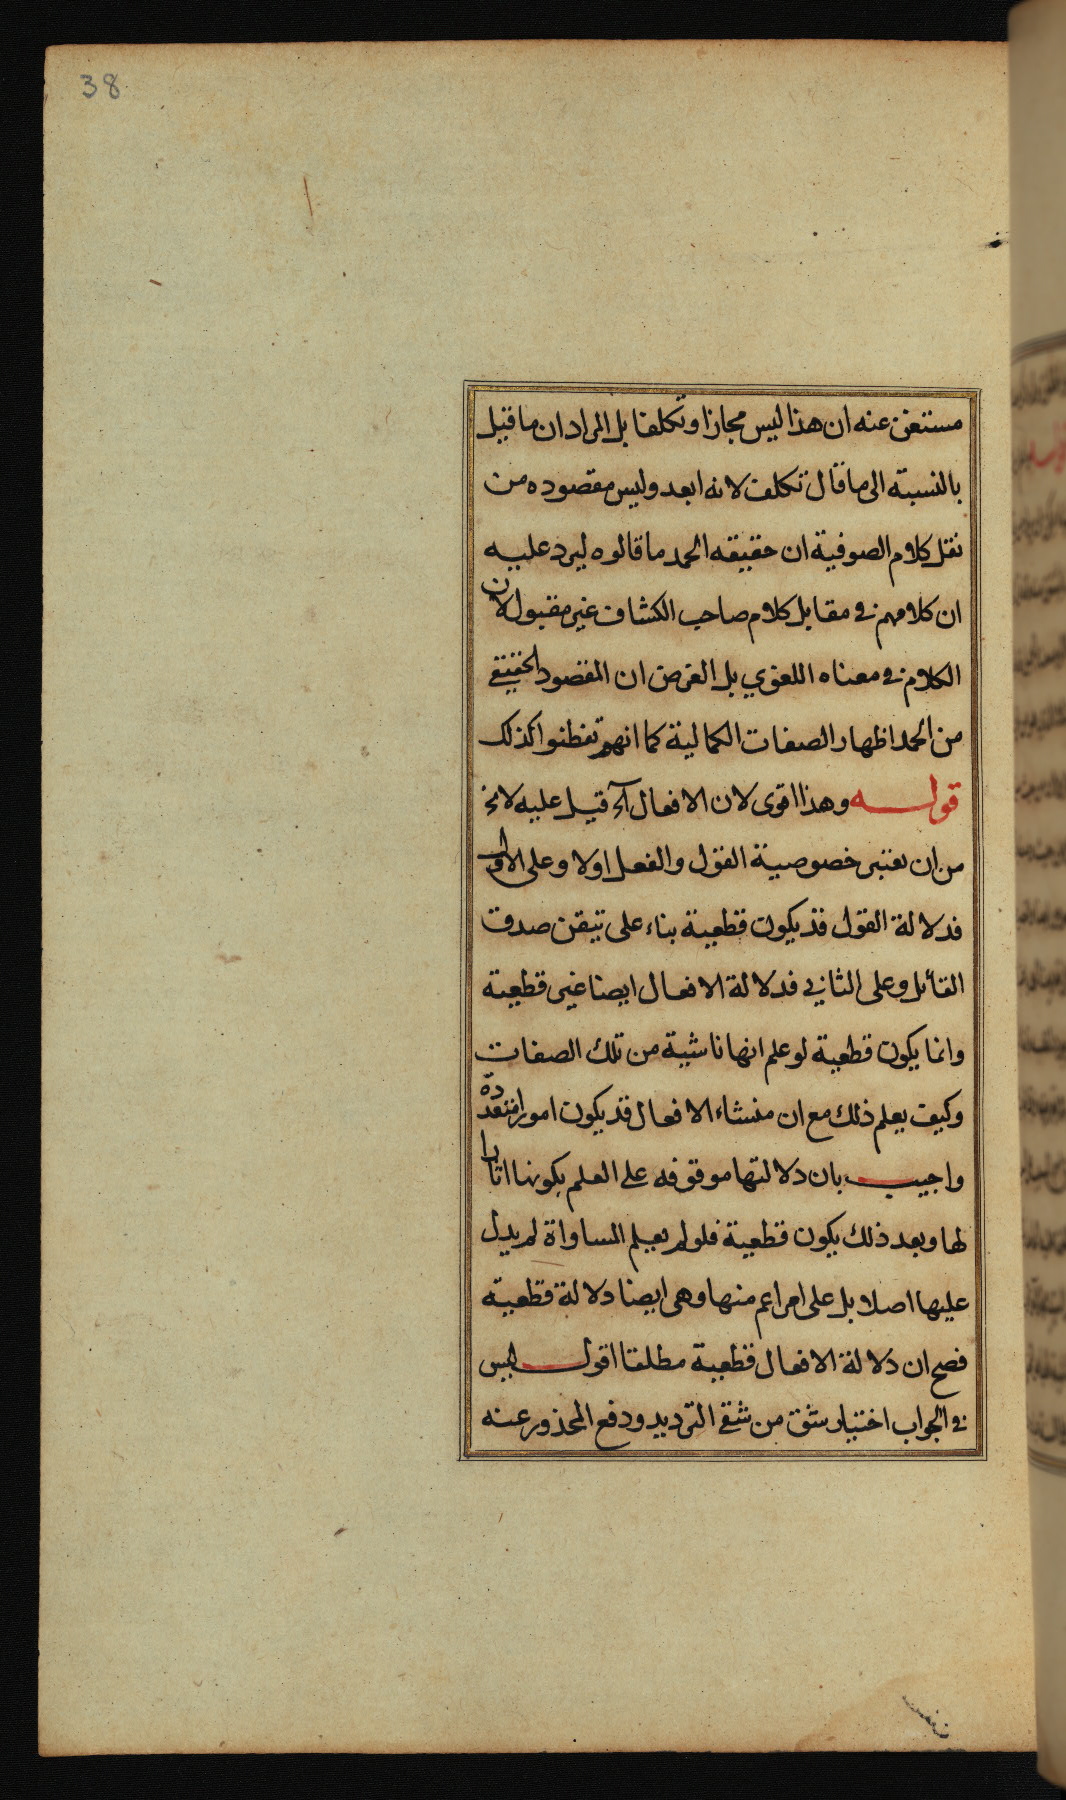 38
مستغن عنه ان هذا ليس مجازا وتكلفا بل المراد ان ما قيل
بالنسبة الى ما قال تكلف لانه ابعد وليس مقصوده من
نقل كلام الصوفية ان حقيقه الحمد ما قالوه ليرد عليه
ان كلامهم في مقابل كلام صاحب الكشاف غير مقبول لان
الكلام في معناه اللغوي بل الغرض ان المقصود الحقيقي
من الحمد اظهار الصفات الكمالية كما انهم تفطنوا كذلك
قوله وهذا اقوى لان الافعال آه قيل عليه لا يخ
من ان يعتبر خصوصية القول والفعل اولا وعلى الاول
فدلالة القول قد يكون قطعية بناء على تيقن صدق
القائل وعلى الثاني فدلالة الافعال ايضا غير قطعية
وانما يكون قطعية لو علم انها ناشية من تلك الصفات
وكيف يعلم ذلك مع ان منشاء الافعال قد يكون امورا متعددة
واجيب بان دلالتها موقوفه على العلم بكونها اثارا
لها وبعد ذلك يكون قطعية فلو لم يعلم المساواة لم يدل
عليها اصلا بل على امر اعم منها وهى ايضا دلالة قطعية
فصح ان دلالة الافعال قطعية مطلقا اقول ليس
في الجواب اختيار شق من شقي الترديد ودفع المحذور عنه